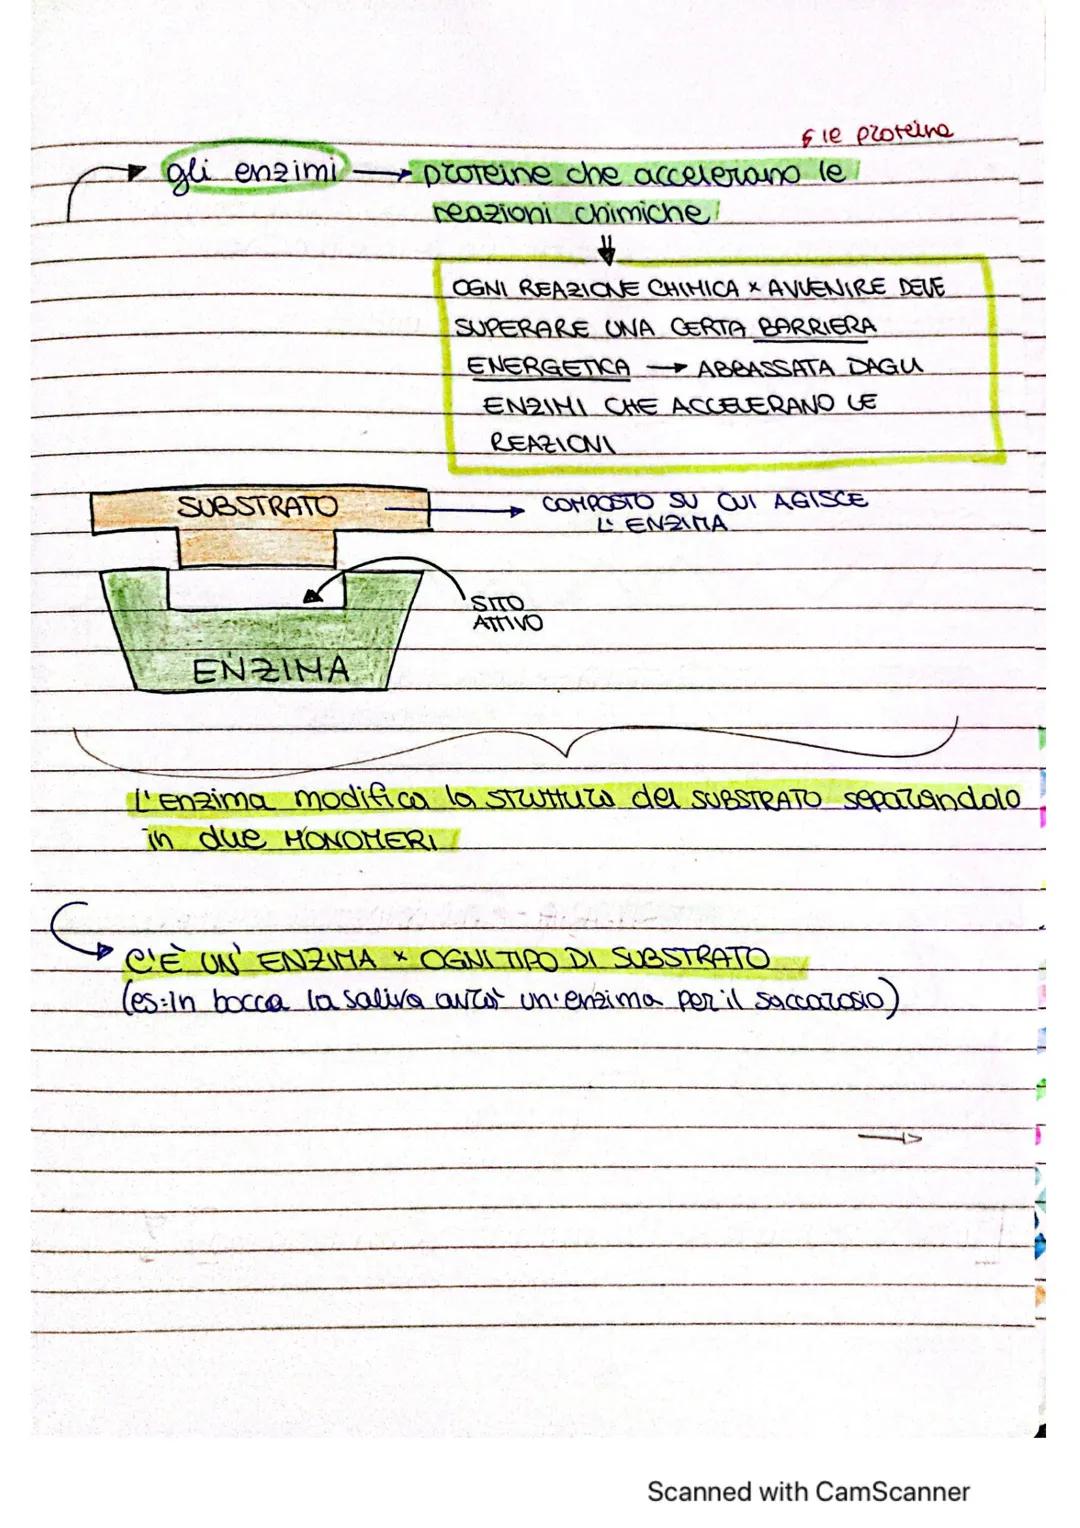 le proteine
gli enzimi → proteine che accelerano le
reazioni chimiche
OGNI REAZIONE CHIMICA x AVVENIRE DEVE
SUPERARE UNA CERTA BARRIERA
ENERGETICA → ABBASSATA DAGLI
ENZIMI CHE ACCELERANO LE
REAZIONI
SUBSTRATO
COMPOSTO SU CUI AGISCE
L'ENZIMA
SITO
ATTIVO
ENZIMA
L'enzima modifica la struttura del SUBSTRATO separandolo
in due MONOMERI
C'È UN' ENZIMA x OGNI TIPO DI SUBSTRATO
(es: in bocca la saliva avrà un'enzima per il saccarosio)
Scanned with CamScanner